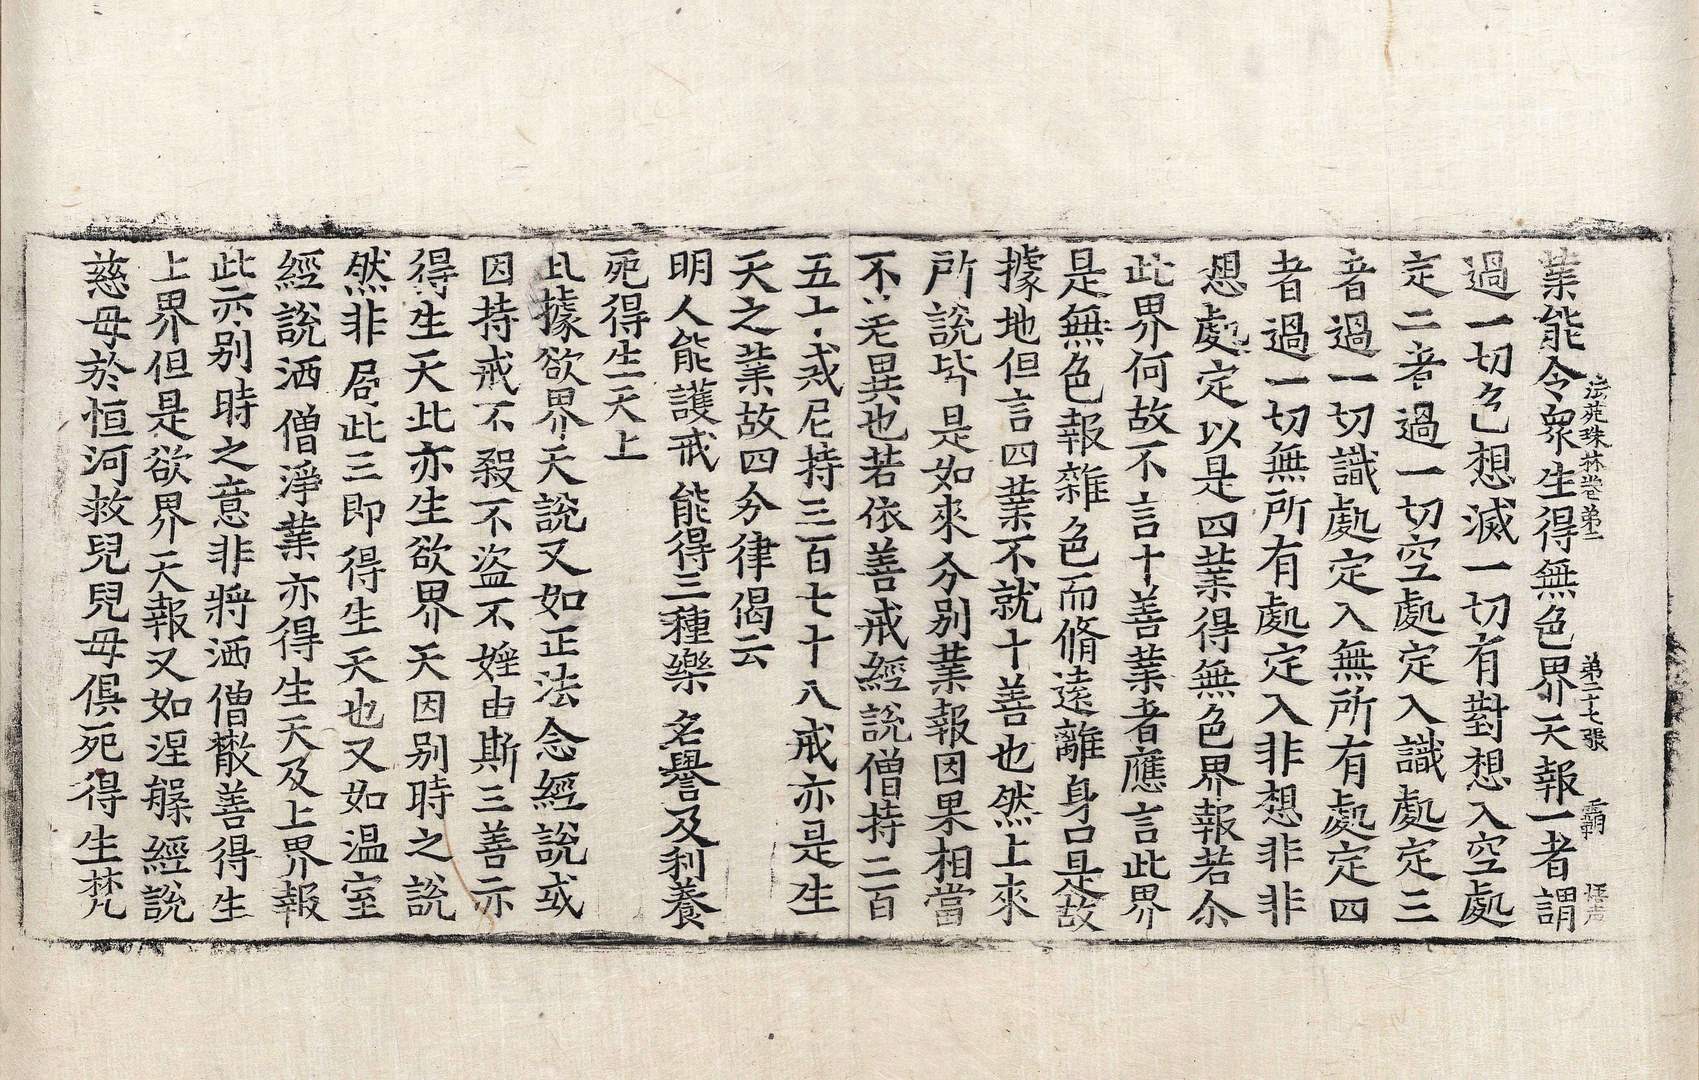 法苑珠林卷第二 第二十七張 霸 悟声
業能令衆生得無色界天報一者謂
過一切色想滅一切有對想入空處
定二者過一切空處定入識處定三
者過一切識處定入無所有處定四
者過一切無所有處定入非想非非
想處定以是四業得無色界報若尒
此界何故不言十善業者應言此界
是無色報離色而脩遠離身口是故
據地但言四業不就十善也然上來
所說皆是如來分別業報因果相當
不差異也若依善戒經說僧持二百
五十戒尼持三百七十八戒亦是生
天之業故四分律偈云
明人能護戒 能得三種樂 名譽及利養
死得生天上
此據欲界天說又如正法念經說或
因持戒不殺不盜不婬由斯三善亦
得生天此亦生欲界天因别時之說
然非局此三即得生天也又如温室
經說洒僧淨業亦得生天及上界報
此亦别時之意非將洒僧散善得生
上界但是欲界天報又如涅槃經說
慈母於恒河救兒兒母俱死得生梵